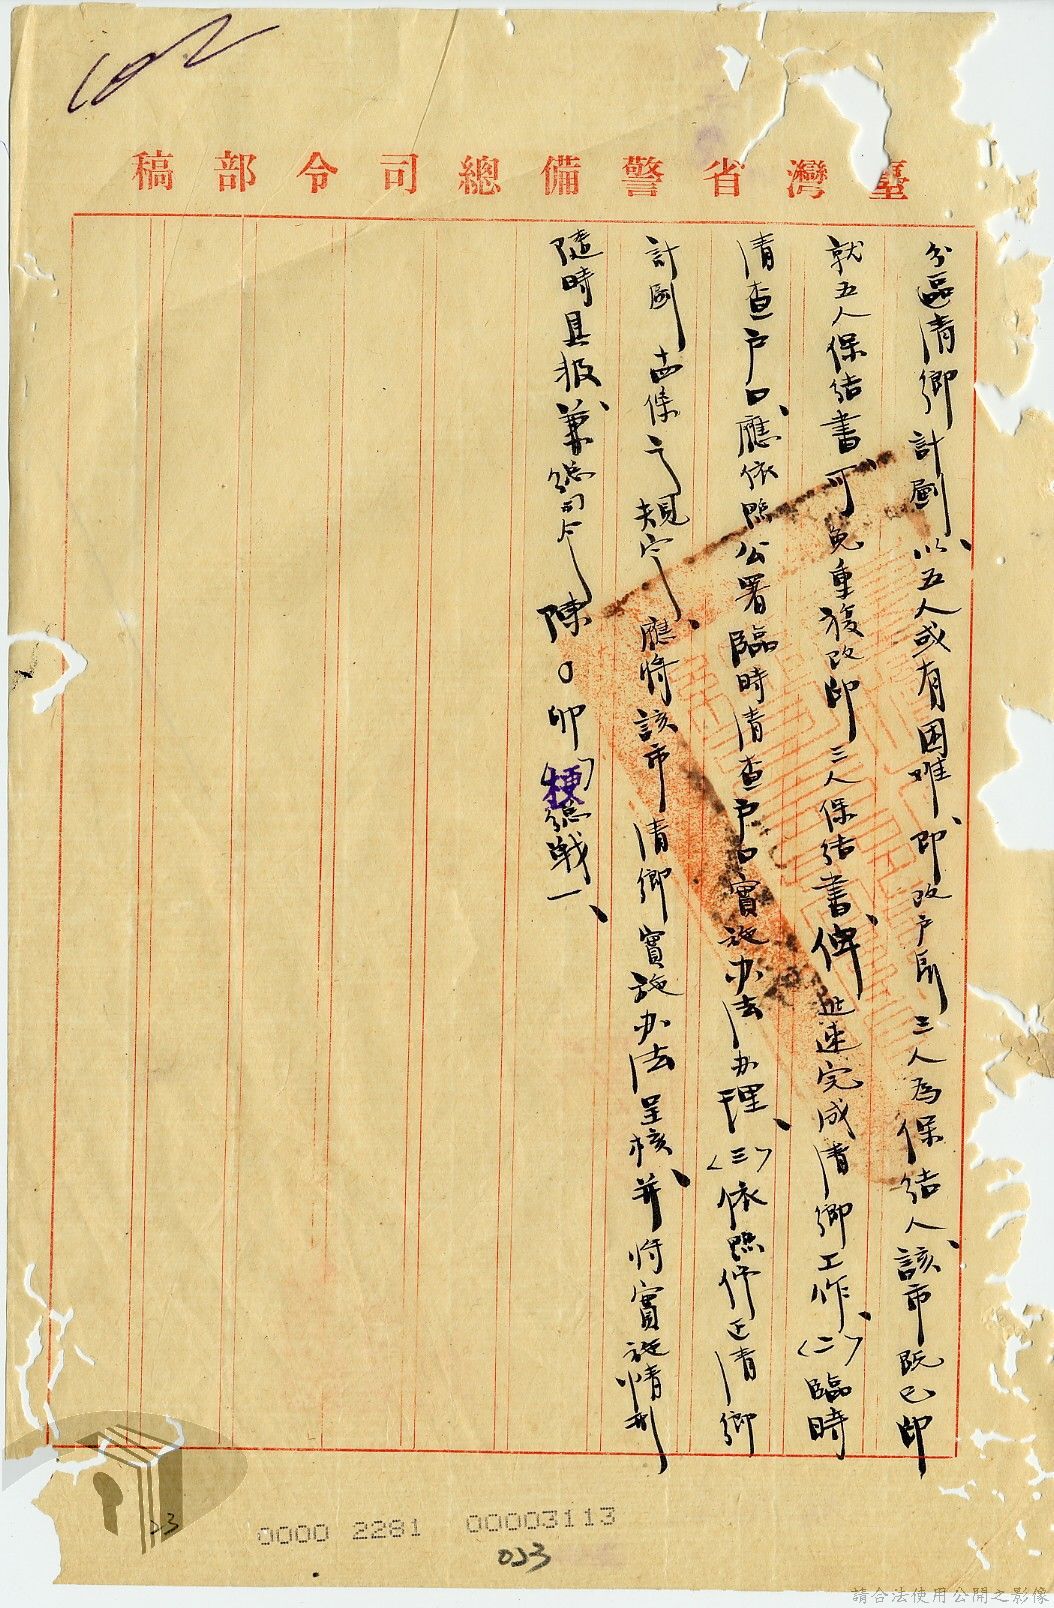 臺灣省警備總司令部稿
分區清鄉計劃、以五人或有困难、即改户長三人為保结人、該市既已印
就五人保结書、可免重複改印三人保结書、俾迅速完成清鄉工作、〈二〉臨時
清查户口、應依照公署臨時清查户口實施办法办理、〈三〉依照修正清鄉
計劃十四條之規定、應将該市清鄉實施办法呈核、並将實施情形
隨時具报、兼總司令陳〇卯梗總戰一、
0000 2281 00003113
023
23
請合法使用公開之影像